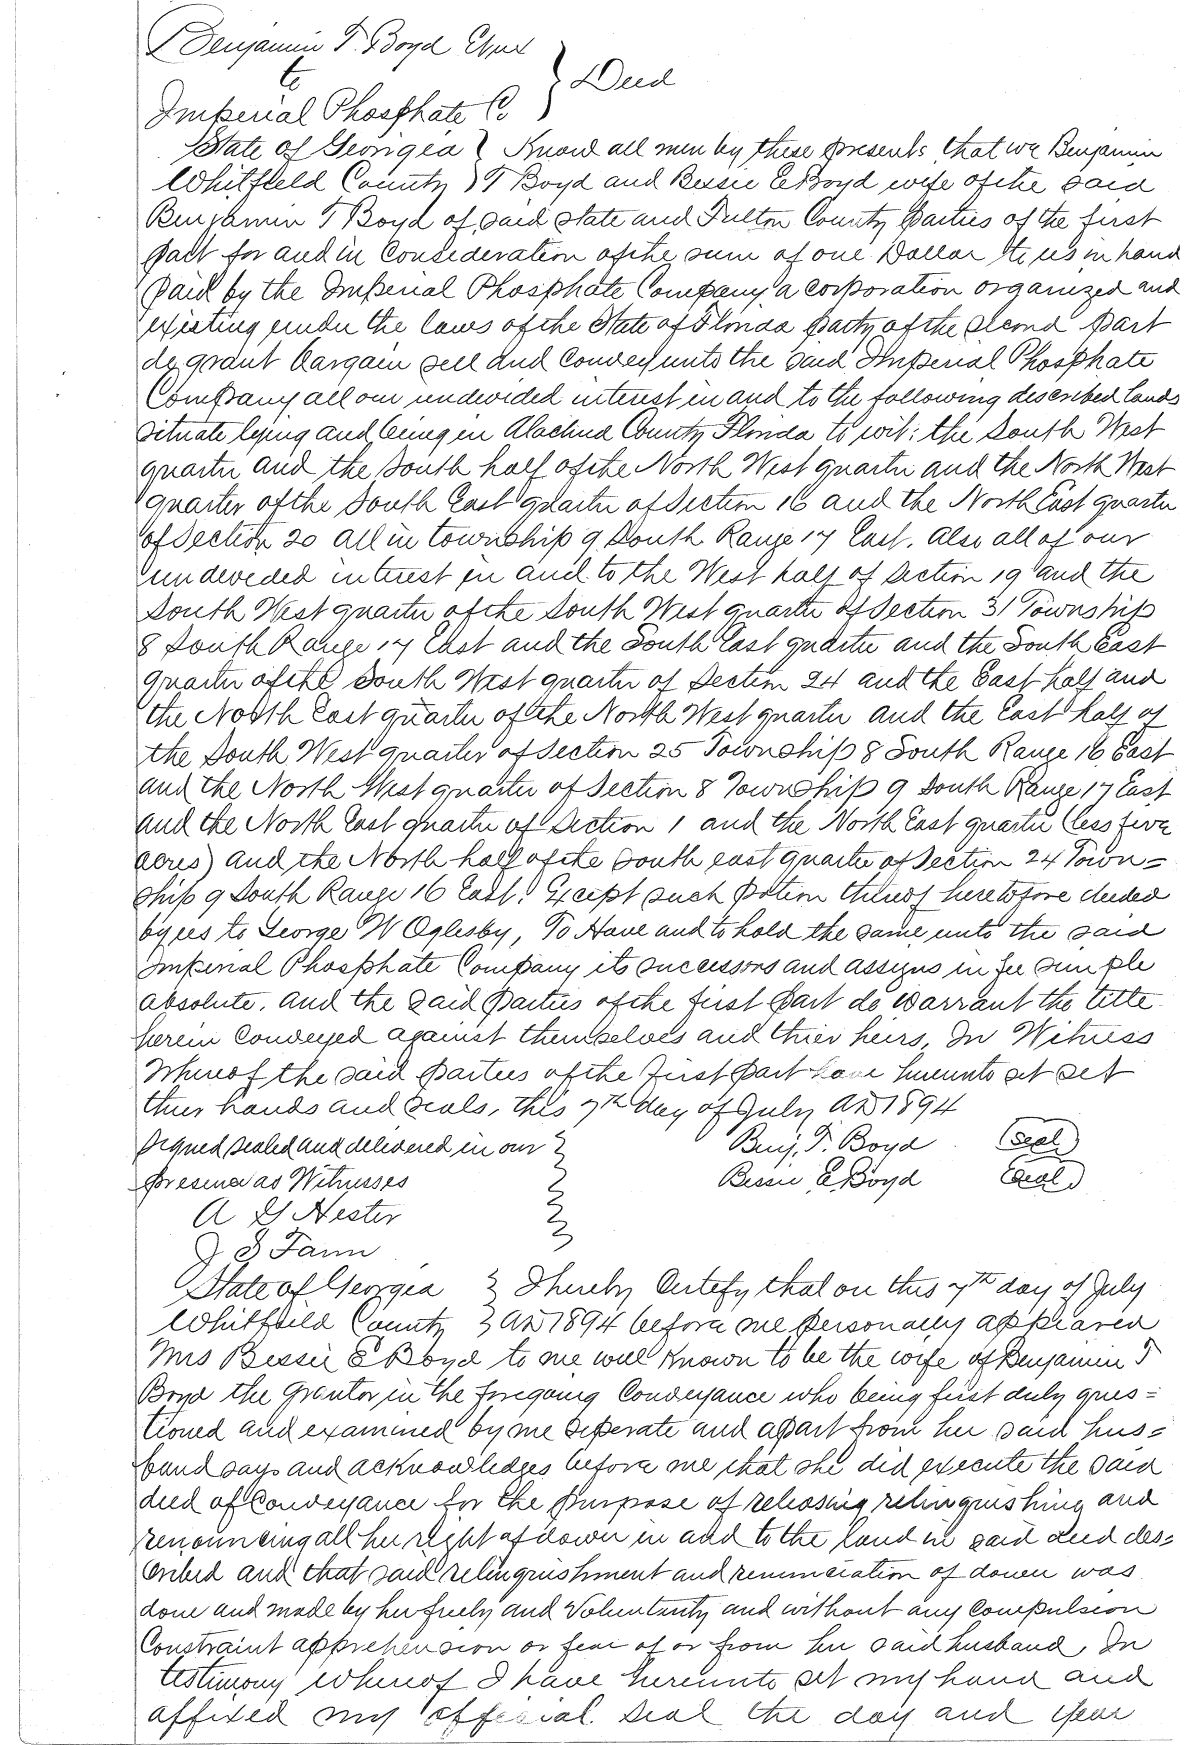 Benjamin T. Boyd Etux
to } Deed
Imperial Phosphate Co
State of Georgia } Know all men by these presents that we Benjamin
Whitfield County } T Boyd and Bessie E Boyd wife of the said
Benjamin T Boyd of said state and Fulton County parties of the first
part for and in consideration of the sum of one Dollar to us in hand
paid by the Imperial Phosphate Company a corporation organized and
existing under the laws of the State of Florida party of the second part
do grant bargain sell and convey unto the said Imperial Phosphate
Company all our undivided interest in and to the following described lands
situate lying and being in Alachua County Florida to wit: the South West
quarter and the South half of the North West quarter and the North West
quarter of the South East quarter of Section 16 and the North East quarter
of Section 20 all in township 9 South Range 17 East. Also all of our
undeveded interest in and to the West half of Section 19 and the
South West quarter of the South West quarter of Section 31 Township
8 South Range 17 East and the South East quarter and the South East
quarter of the South West quarter of Section 24 and the East half and
the North East quarter of the North West quarter and the East half of
the South West quarter of Section 25 Township 8 South Range 16 East
and the North West quarter of Section 8 Township 9 South Range 17 East
and the North East quarter of Section 1 and the North East quarter (less five
acres) and the North half of the South east quarter of Section 24 Town=
ship 9 South Range 16 East. Except such potion thereof heretofore deeded
by us to George W Oglesby, To Have and to hold the same unto the said
Imperial Phosphate Company its successors and assigns in fee simple
absolute. And the said parties of the first part do warrant the title
herein conveyed against themselves and thier heirs, In Witness
Whereof the said parties of the first part have hereunto set set
thier hands and seals, this 7th day of July AD 1894
Signed sealed and delivered in our } Benj. T. Boyd (seal)
presence as Witnesses } Bessie E Boyd (seal)
A G Hester
J S Farm
State of Georgia } I hereby Certify that on this 7th day of July
Whitfield County } AD 1894 before me personally appeared
Mrs Bessie E Boyd to me well known to be the wife of Benjamin T
Boyd the grantor in the foregoing Conveyance who being first duly ques=
tioned and examined by me seperate and apart from her said hus=
band says and acknowledges before me that she did execute the said
deed of Conveyance for the purpose of releasing relinquishing and
renouncing all her right of dower in and to the land in said deed des=
cribed and that said relinquishment and renunciation of dower was
done and made by her freely and Voluntarily and without any Compulsion
Constraint apprehension or fear of or from her said husband, In
testimony whereof I have hereunto set my hand and
affixed my official seal the day and year